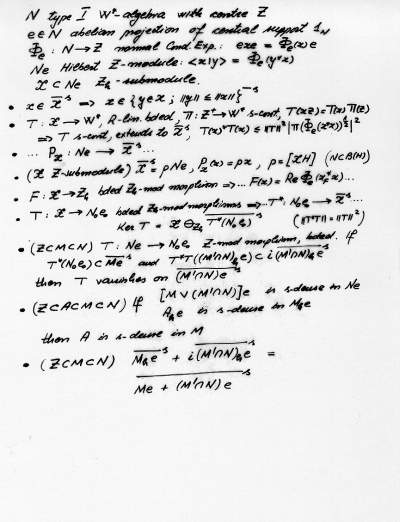 N type I W*-algebra with centre Z
e∈N abelian projection of central support 1_N
Φ_e : N→Z normal Cond. Exp.: exe = Φ_e(x)e
Ne Hilbert Z-module: <x|y> = Φ_e(y*x)
X ⊂ Ne Z_h-submodule.
• x∈X̄^s ⇒ x∈{y∈X; ‖y‖≤‖x‖}^{-s}
• T: X→W*, R-lin. bded, π: Z→W* s-cont., T(xz)=T(x)π(z)
⇒ T s-cont, extends to X̄^s, T(x)*T(x) ≤ ‖T‖²|π(Φ_e(x*x))^{1/2}|²
• ... P_X : Ne → X̄^s ...
• (X Z-submodule) X̄^s = pNe, P_X(x) = px, p=[XH] (N⊂B(H))
• F: X→Z_h bded Z_h-mod morphism ⇒... F(x) = Re Φ_e(x_F* x)...
• T: X→N_0e_0 bded Z_h-mod morphisms ⇒... T*: N_0e_0 → X̄^s ...
Ker T = X ⊖_{Z_h} T*(N_0e_0)^s (‖T*T‖=‖T‖²)
• (Z⊂M⊂N) T: Ne → N_0e_0 Z-mod morphism, bded. If
T*(N_0e_0) ⊂ Me^s and T*T((M'∩N)_h e) ⊂ i(M'∩N)_h e^s
then T vanishes on (M'∩N)e
• (Z⊂A⊂M⊂N) If [M∨(M'∩N)]e is s-dense in Ne
A_h e is s-dense in M_h e
then A is s-dense in M
• (Z⊂M⊂N) M_h e^s + i(M'∩N)_h e^s =
Me + (M'∩N)e^s